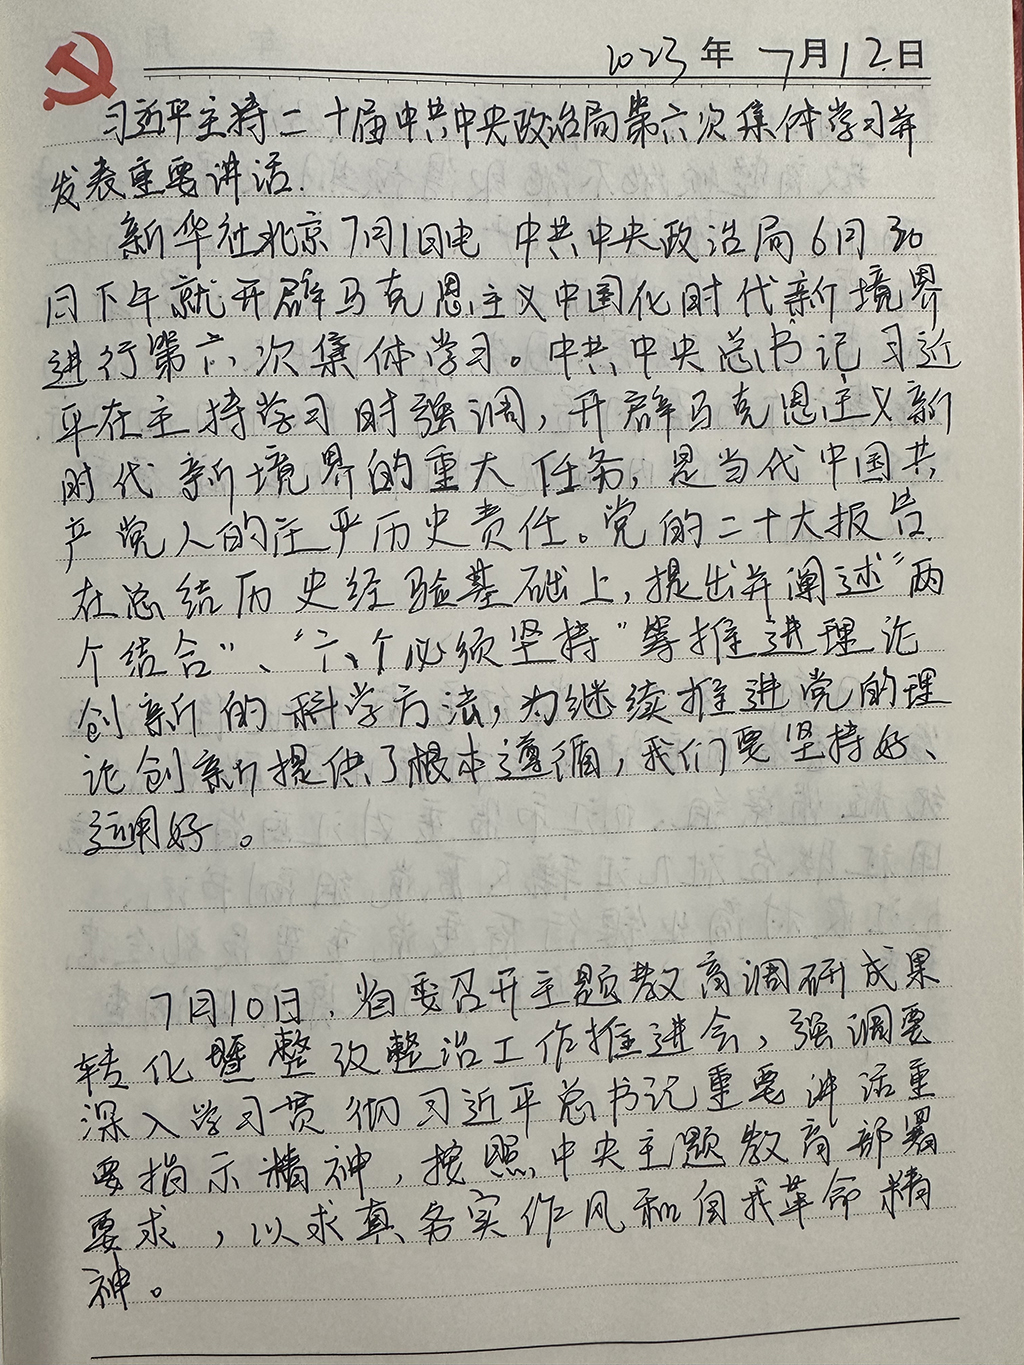 2023年7月12日
习近平主持二十届中共中央政治局第六次集体学习并
发表重要讲话.
新华社北京7月1日电 中共中央政治局6月30
日下午就开辟马克思主义中国化时代新境界
进行第六次集体学习。中共中央总书记习近
平在主持学习时强调,开辟马克思主义新
时代新境界的重大任务,是当代中国共
产党人的庄严历史责任。党的二十大报告
在总结历史经验基础上,提出并阐述“两
个结合”、“六个必须坚持”等推进理论
创新的科学方法,为继续推进党的理
论创新提供了根本遵循,我们要坚持好、
运用好。
7月10日,省委召开主题教育调研成果
转化暨整改整治工作推进会,强调要
深入学习贯彻习近平总书记重要讲话重
要指示精神,按照中央主题教育部署
要求,以求真务实作风和自我革命精
神。